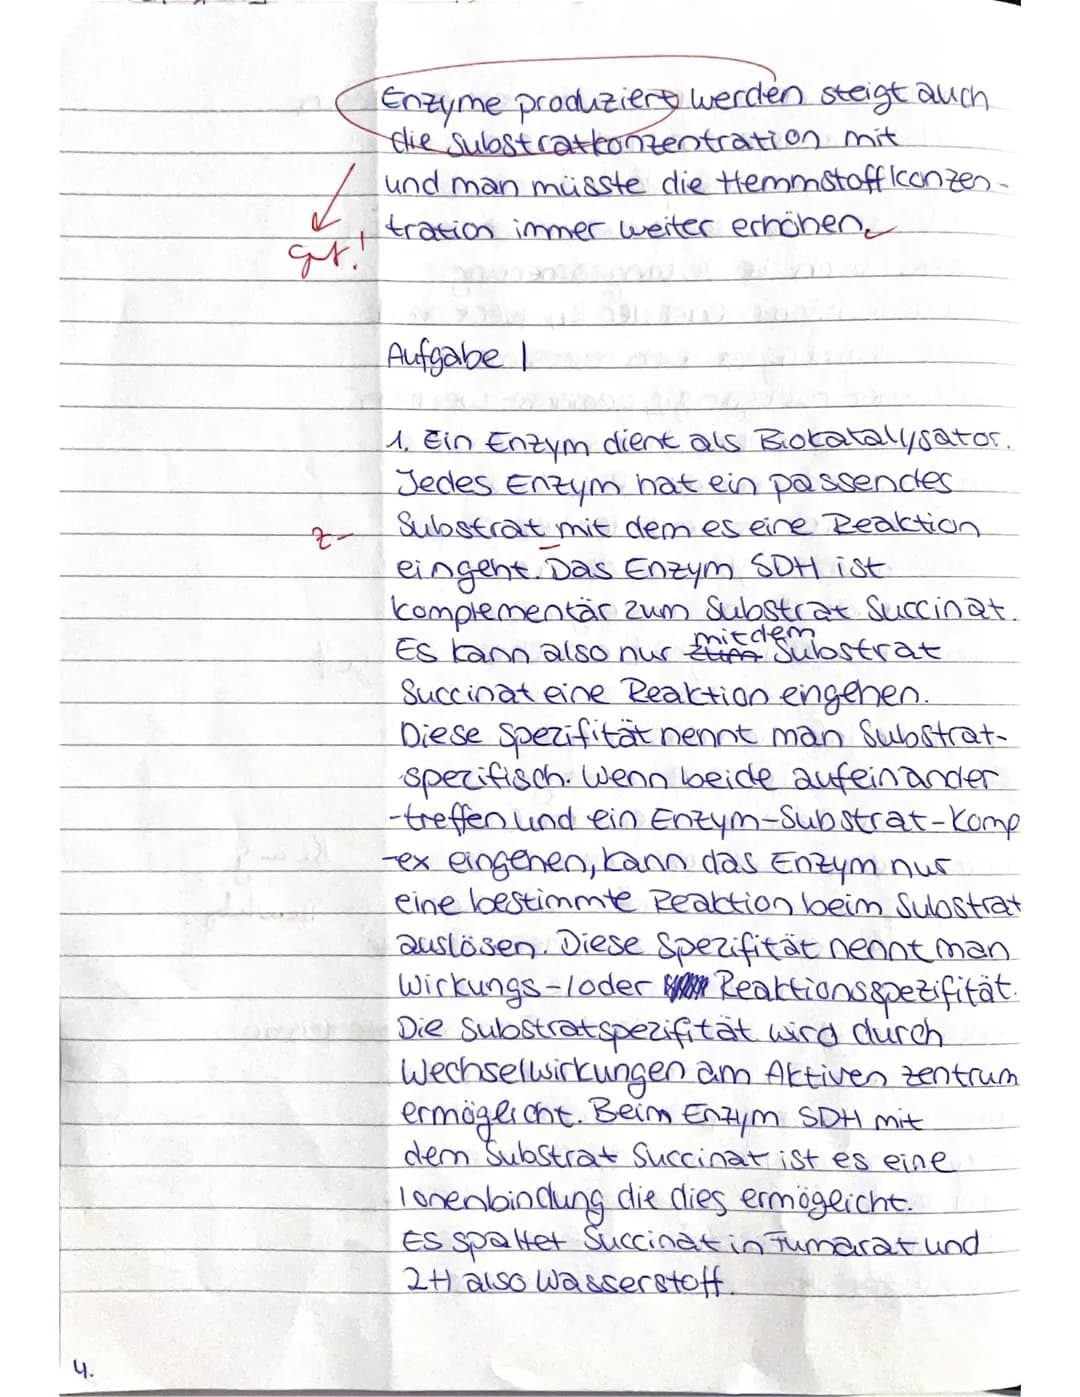 Enzyme produziert werden steigt auch
die Substratkonzentration mit
und man müsste die Hemmstoffkonzen-
tration immer weiter erhöhen.
gut!
Aufgabe 1
1. Ein Enzym dient als Biokatalysator.
Jedes Enzym hat ein passendes
Z- Substrat mit dem es eine Reaktion
eingeht. Das Enzym SDH ist
komplementär zum Substrat Succinat.
mit dem
Es kann also nur zum Substrat
Succinat eine Reaktion eingehen.
Diese Spezifität nennt man Substrat-
spezifisch. Wenn beide aufeinander
-treffen und ein Enzym-Substrat-Komp
-ex eingehen, kann das Enzym nur
eine bestimmte Reaktion beim Substrat
auslösen. Diese Spezifität nennt man
Wirkungs-/oder Reaktionsspezifität.
Die Substratspezifität wird durch
Wechselwirkungen am Aktiven zentrum
ermöglicht. Beim Enzym SDH mit
dem Substrat Succinat ist es eine
Ionenbindung die dies ermöglicht.
Es spaltet Succinat in Fumarat und
2H also Wasserstoff.
4.